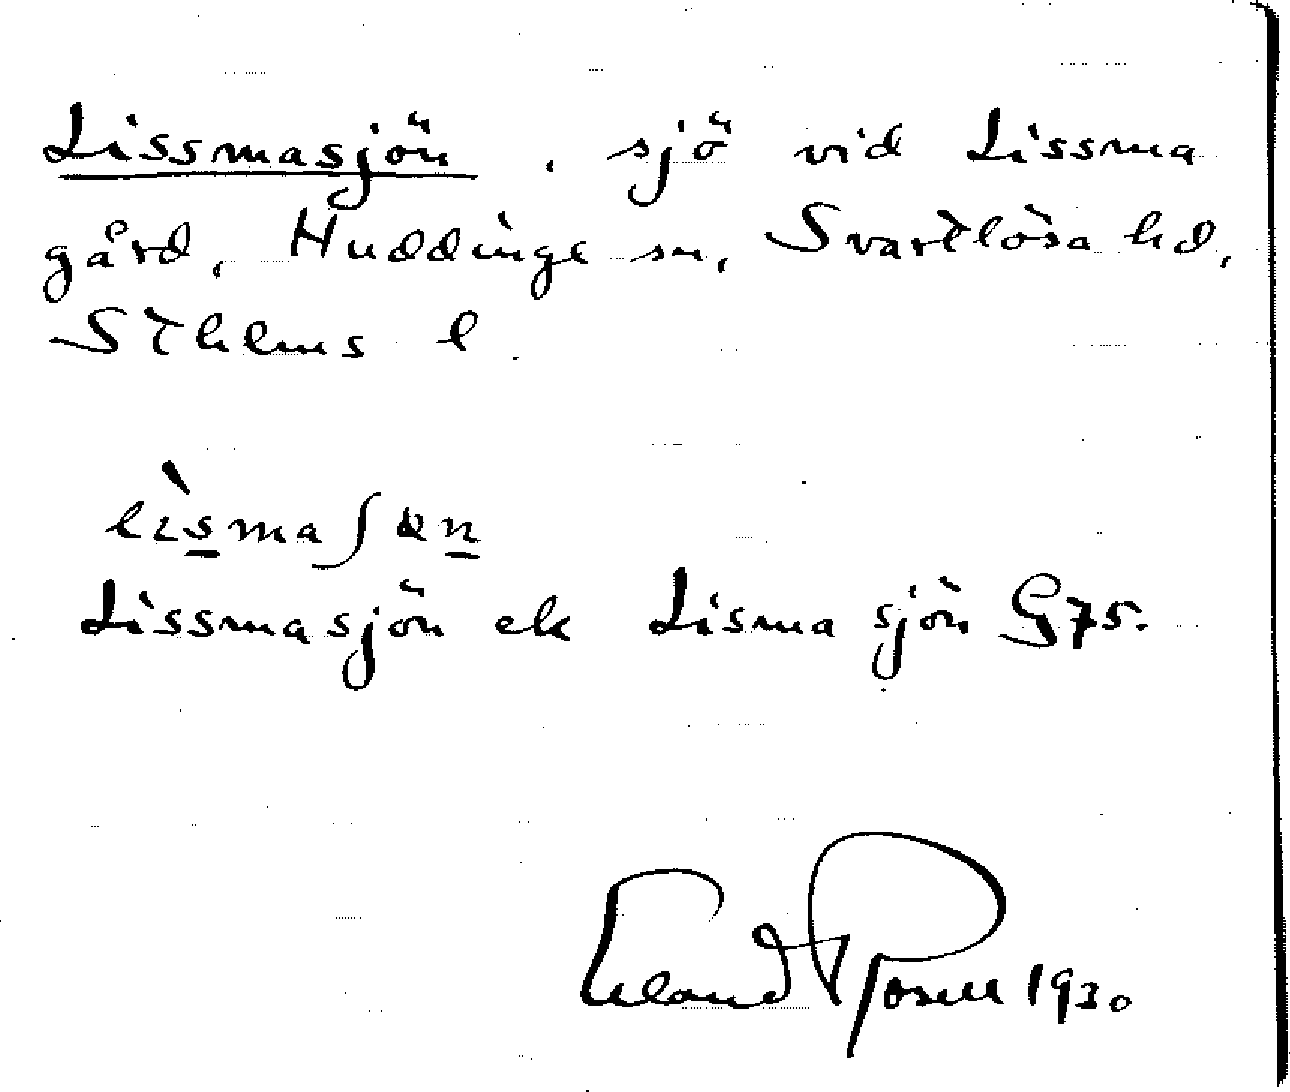 Lissmasjön, sjö vid Lissma
gård, Huddinge sn, Svartlösa hd,
Sthlms l.
Lissmasjön ek Lisma sjön G75.
Erland Rosell 1930